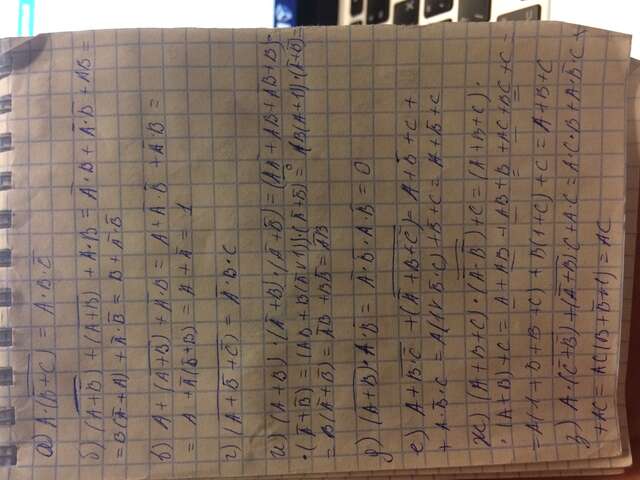 а) A·(B̅+C) = A·B·C̅
б) (A+B̅) + (A+B) + A·B = A̅·B + A̅·B̅ + AB =
= B(A̅+A) + A̅·B̅ = B + A̅·B̅
в) A + (A+B) + A̅·B = A + A̅·B̅ + A̅·B =
= A + A̅(B̅+B) = A + A̅ = 1
г) (A + B̅ + C̅) = A̅·B·C
и) (A+B)·(A̅+B)·(A̅+B̅) = (AA̅ + AB + A̅B + B)·
·(A̅+B̅) = (AB + B(A̅∨1))·(A̅+B̅) = B(A+1)·(A̅+B̅) =
= B(A̅+B̅) = A̅B + BB̅ = A̅B
д) (A+B)·A·B̅ = A̅·B̅·A·B̅ = 0
е) A + B·C̅ + (A̅+B+C̅) = A + B̅ + C +
+ A·B̅·C = A(1∨B̅·C) + B̅ + C = A + B̅ + C
ж) (A+B+C)·(A̅·B̅) + C = (A+B+C)·
·(A+B) + C = A + AB + AB + B + AC + BC + C =
= A(1+B+B+C) + B(1+C) + C = A+B+C
з) A·(C̅+B̅) + (A̅+B) C + A·C = A·C·B + A·B̅·C +
+ AC = AC(B+B̅+1) = AC